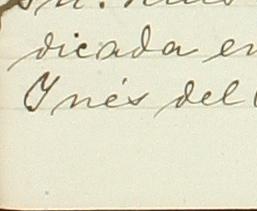 dicada en
Inés del